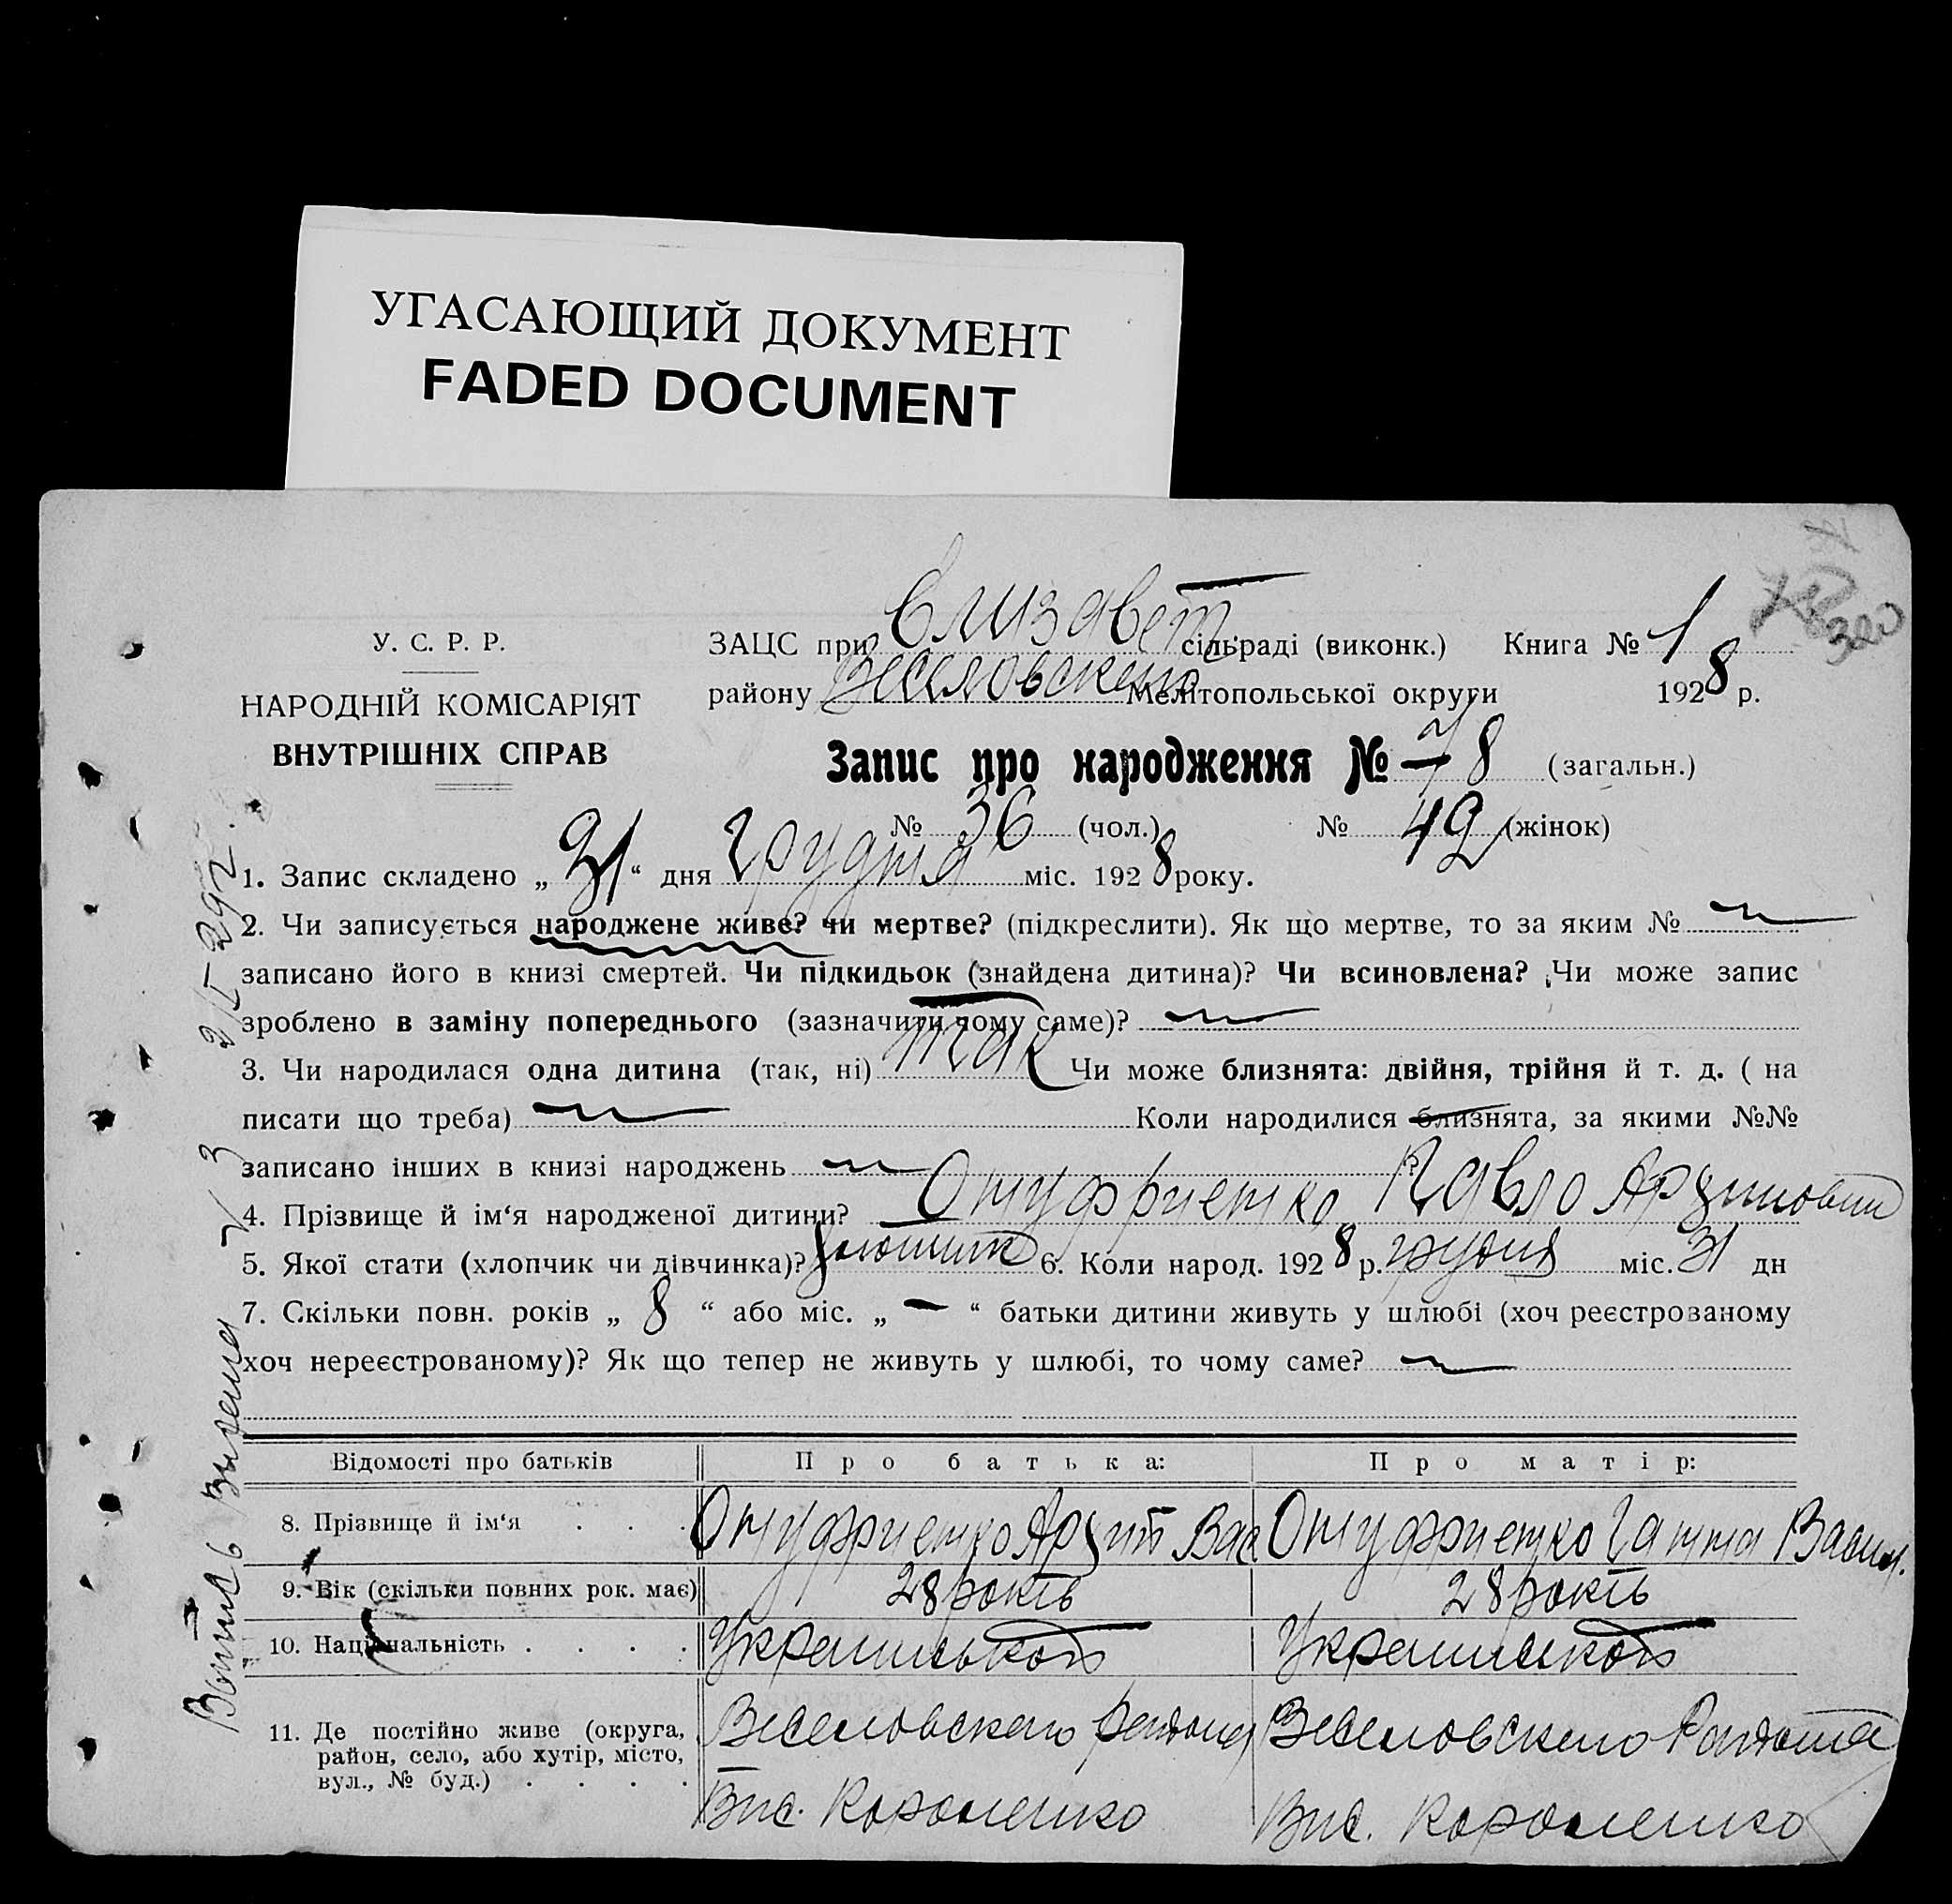 УГАСАЮЩИЙ ДОКУМЕНТ
FADED DOCUMENT
У. С. Р. Р.
НАРОДНІЙ КОМІСАРІЯТ
ВНУТРІШНІХ СПРАВ
ЗАЦС при Єлизавет сільраді (виконк.) Книга № 1
району Веселовского Мелітопольської округи 1928 р.
Запис про народження № 78 (загальн.)
№ 36 (чол.) № 42 (жінок)
1. Запис складено „31“ дня Грудня міс. 1928 року.
2. Чи записується народжене живе? чи мертве? (підкреслити). Як що мертве, то за яким №
записано його в книзі смертей. Чи підкидьок (знайдена дитина)? Чи всиновлена? Чи може запис
зроблено в заміну попереднього (зазначити чому саме)?
3. Чи народилася одна дитина (так, ні) так Чи може близнята: двійня, трійня й т. д. ( на
писати що треба) Коли народилися близнята, за якими №№
записано інших в книзі народжень ?
4. Прізвище й ім‘я народженої дитини? Онуфриенко Павло
5. Якої стати (хлопчик чи дівчинка)? 6. Коли народ. 1928 р. грудня міс. 31 дн
7. Скільки повн. років „ 8 “ або міс. „ — “ батьки дитини живуть у шлюбі (хоч реєстрованому
хоч нереєстрованому)? Як що тепер не живуть у шлюбі, то чому саме?
Відомості про батьків Про батька: Про матір:
8. Прізвище й ім‘я . . . Онуфриенко Вас Онуфриенко Ганна Васил.
9. Вік (скільки повних рок. має) 28 років 28 років
10. Національність . . . .
11. Де постійно живе (округа, район, село, або хутір, місто, вул., № буд.) . . . .
Веселовского района Веселовского Района
Вис. Короленко Вис. Короленко